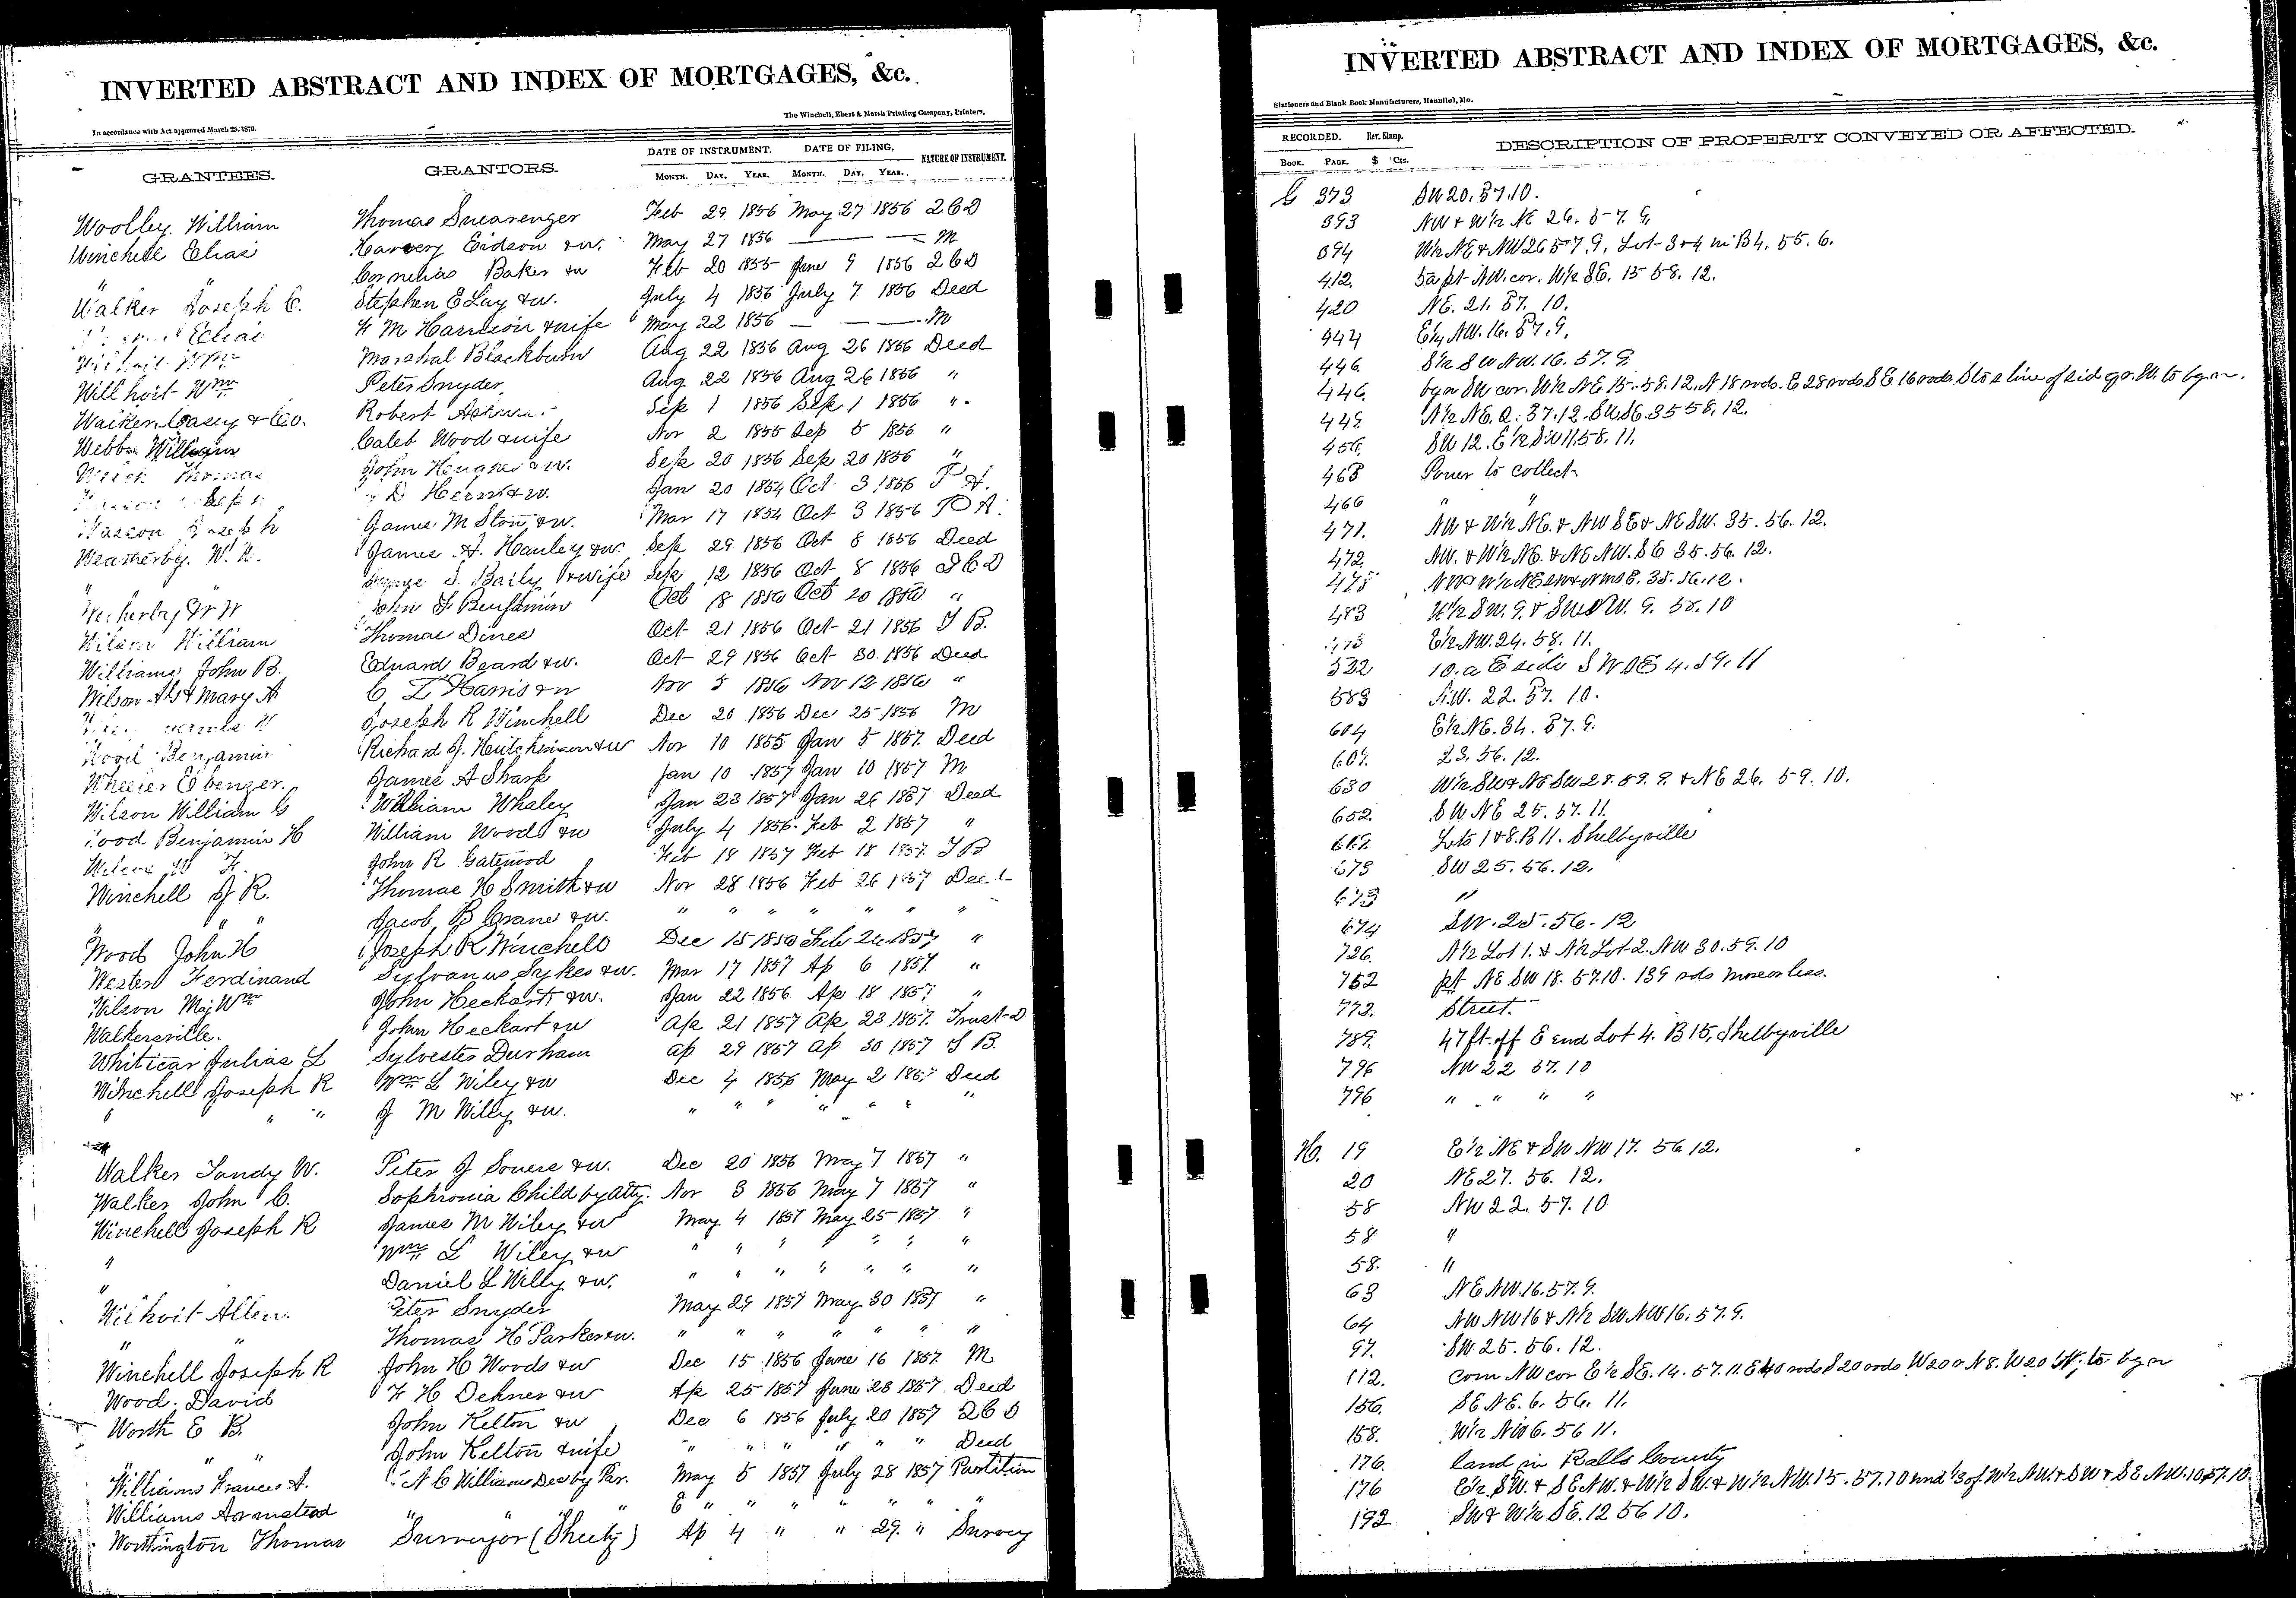 INVERTED ABSTRACT AND INDEX OF MORTGAGES, &c.
In accordance with Act approved March 25, 1870.
The Winchell, Ebert & Marsh Printing Company, Printers,
GRANTEES. GRANTORS. DATE OF INSTRUMENT. DATE OF FILING. NATURE OF INSTRUMENT.
MONTH. DAY. YEAR. MONTH. DAY. YEAR.
Woolley William Thomas Snearenger Feb 29 1856 May 27 1856 2 C D
Winchell Elias Harvery Eidson &w. May 27 1856 — — M
" Cornelias Baker &w Feb 20 1855 June 9 1856 2 C D
Walker Joseph C. Stephen E Lay &w. July 4 1856 July 7 1856 Deed
Elias F M Harrison &wife May 22 1856 — — M
Marshal Blackburn Aug 22 1856 Aug 26 1856 Deed
Willhoit Wm Peter Snyder Aug 22 1856 Aug 26 1856 "
Walker, Casey & Co. Robert Sep 1 1856 Sep 1 1856 "
Webb William Caleb Wood &wife Nov 2 1855 Sep 5 1856 "
Thomas John &w. Sep 20 1856 Sep 20 1856 "
D &w. Jan 20 1854 Oct 3 1856 P A.
Joseph James M Ston &w. Mar 17 1854 Oct 3 1856 P A.
Weatherby. W. W. James A. Hanley &w. Sep 29 1856 Oct 8 1856 Deed
" S. Baily &wife Sep 12 1856 Oct 8 1856 2 C D
W W John F Benjamin Oct 18 1856 Oct 20 1856 "
Wilson William Thomas Dines Oct 21 1856 Oct 21 1856 T B.
Williams John B. Edward Beard &w. Oct 29 1856 Oct 30 1856 Deed
Wilson & Mary A C Z Harris &w Nov 5 1856 Nov 12 1856 "
Joseph R Winchell Dec 20 1856 Dec 25 1856 M
Wood Benjamin Richard J. Hutchinson &w Nov 10 1855 Jan 5 1857 Deed
Wheeler Ebenzer. James A Sharp Jan 10 1857 Jan 10 1857 M
Wilson William G William Whaley Jan 23 1857 Jan 26 1857 Deed
Wood Benjamin H William Woods &w July 4 1856 Feb 2 1857 "
John R Gatewood Feb 18 1857 Feb 18 1857 T B
Winchell J R. Thomas H Smith &w Nov 28 1856 Feb 26 1857 Deed
" " Jacob B Crane &w. " " " " " " "
Wood John H Joseph R Winchell Dec 15 1856 Feb 26 1857 "
Wester Ferdinand Sylvanus Sykes &w. Mar 17 1857 Ap 6 1857 "
Wilson Maj Wm John Heckart &w. Jan 22 1856 Ap 18 1857 "
Walkersville. John Heckart &w Ap 21 1857 Ap 23 1857 Trust D
Whiticar Julias L Sylvester Durham Ap 29 1857 Ap 30 1857 T B.
Winchell Joseph R Wm L Wiley &w Dec 4 1856 May 2 1857 Deed
" " " J M Wiley &w. " " " " " " "
Walker Tandy W. Peter J Sowere &w. Dec 20 1856 May 7 1857 "
Walker John C. Sophronia Child by Atty. Nov 3 1856 May 7 1857 "
Winchell Joseph R James M Wiley &w May 4 1857 May 25 1857 "
" Wm L Wiley &w " " " " " " "
" Daniel L Willy &w. " " " " " " "
Wilhoit Allen. Peter Snyder May 29 1857 May 30 1857 "
" " Thomas H Parker &w. " " " " " " "
Winchell Joseph R John H Woods &w Dec 15 1856 June 16 1857 M
Wood. David F H Dehner &w Ap 25 1857 June 23 1857 Deed
Worth E B. John Kelton &w Dec 6 1856 July 20 1857 2 C D
" " John Kelton &wife " " " " " " Deed
Williams Frances A. N C Williams Dec by Par. May 5 1857 July 28 1857 Partition
Williams Armstead " " " " " " " " "
Worthington Thomas Surveyor (Sheetz) Ap 4 " " 29 " Survey
INVERTED ABSTRACT AND INDEX OF MORTGAGES, &c.
Stationers and Blank Book Manufacturers, Hannibal, Mo.
RECORDED. Rev. Stamp. DESCRIPTION OF PROPERTY CONVEYED OR AFFECTED.
BOOK. PAGE. $ Cts.
G 373 SW 20. 57. 10.
393 NW & W½ NE 26. 57. 9.
394 W½ NE & NW 26 57. 9. Lot 3 & 4 in B 4. 55. 6.
412. 5a pt NW. cor. W½ SE. 15 58. 12.
420 NE. 21. 57. 10.
444 E½ NW. 16. 57. 9.
446. S½ SW NW. 16. 57. 9.
446. bgn SW cor. W½ NE 15. 58. 12. N 18 rods. E 28 rods S E 16 rods S to s line of sid qr. W. to bgn.
449. N½ NE. 2. 57. 12. SW SE. 35 58. 12.
456. SW 12. E½ SW 11. 58. 11.
463 Power to collect
466 " "
471. NW & W½ NE. & NW SE & NE SW. 35. 56. 12.
472. NW. & W½ NE. & NE NW. SE 35. 56. 12.
475 NW & W½ NE 35. 56. 12.
483 W½ SW. 9. & SW NW. 9. 58. 10
E½ NW. 24. 58. 11.
532 10. a E side SW SE 4. 59. 11
583 N.W. 22. 57. 10.
604 E½ NE. 34. 57. 9.
607. 23. 56. 12.
630 W½ SW & NE SW 28. 59. 9. & NE 26. 59. 10.
652. SW NE 25. 57. 11.
662. Lots 1 & 8. B 11. Shelbyville
673 SW 25. 56. 12.
673 "
674 SW. 25. 56. 12
726. N½ Lot 1. & N½ Lot 2. NW 30. 59. 10
752 pt NE SW 18. 57. 10. 139 rods more or less.
773. Street.
789. 47 ft. off E end Lot 4. B 15, Shelbyville
796 NW 22 57. 10
796. " " " "
H. 19 E½ NE & SW NW 17. 56 12.
20 NE 27. 56. 12.
58 NW 22. 57. 10
58 "
58. "
63 NE NW. 16. 57. 9.
64 NW NW 16 & N½ SW NW 16. 57. 9.
97. SW 25. 56. 12.
112. Com NW cor E½ SE. 14. 57. 11. E 40 rods S 20 rods W 20 r N 8. W 20 N. to bgn
156. SE NE. 6. 56. 11.
158. W½ NW 6. 56 11.
176. land in Ralls County
176 E½ SW. & SE NW. & W½ SW. & W½ NW. 15. 57. 10 und ⅓ of W½ NW & SW & SE NW. 10. 57. 10
192 SW & W½ SE. 12 56 10.